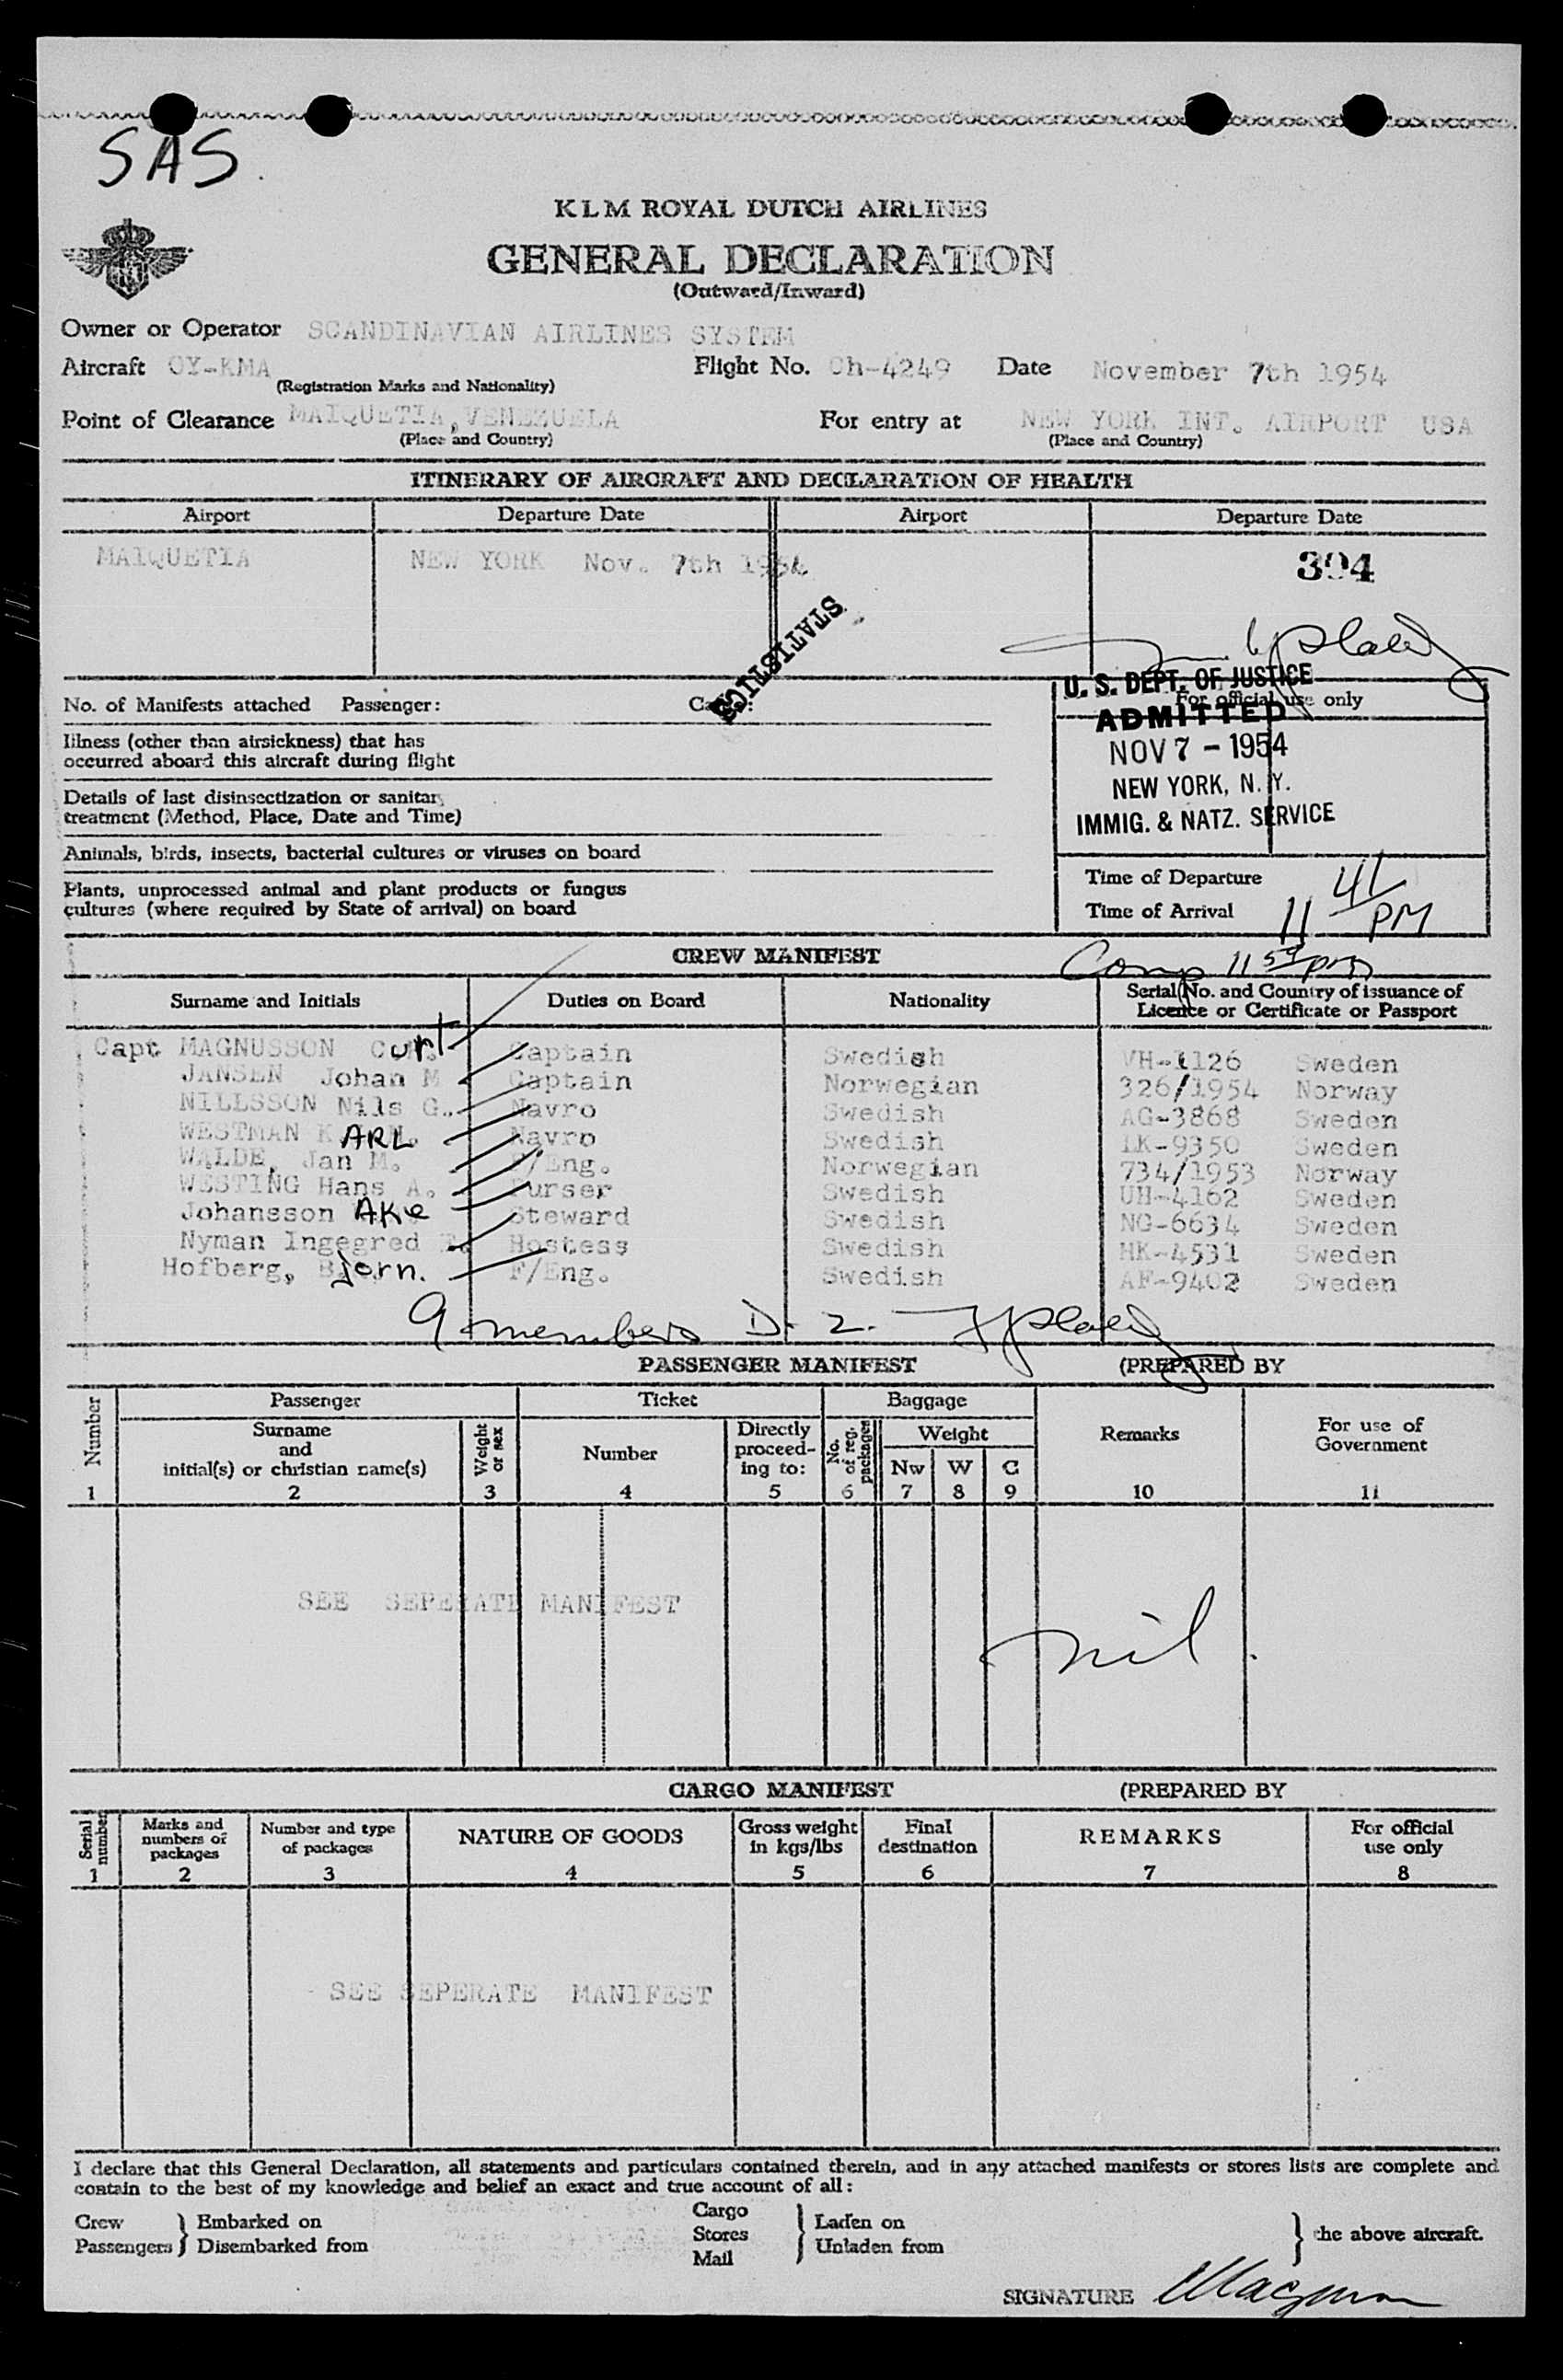 SAS.
KLM ROYAL DUTCH AIRLINES
GENERAL DECLARATION
(Outward/Inward)
Owner or Operator SCANDINAVIAN AIRLINES SYSTEM
Aircraft OY-KMA Flight No. Ch-4249 Date November 7th 1954
(Registration Marks and Nationality)
Point of Clearance MAIQUETIA, VENEZUELA For entry at NEW YORK INT. AIRPORT USA
(Place and Country) (Place and Country)
ITINERARY OF AIRCRAFT AND DECLARATION OF HEALTH
Airport Departure Date Airport Departure Date
MAIQUETIA NEW YORK Nov. 7th 1954
394
STATISTICS
U. S. DEPT. OF JUSTICE
No. of Manifests attached Passenger: For official use only
ADMITTED
NOV 7 - 1954
NEW YORK, N. Y.
IMMIG. & NATZ. SERVICE
Illness (other than airsickness) that has
occurred aboard this aircraft during flight
Details of last disinsectization or sanitary
treatment (Method, Place, Date and Time)
Animals, birds, insects, bacterial cultures or viruses on board
Plants, unprocessed animal and plant products or fungus
cultures (where required by State of arrival) on board
Time of Departure
Time of Arrival 11 41 PM
CREW MANIFEST
Comp 11 59 pm
Surname and Initials Duties on Board Nationality Serial No. and Country of issuance of
Licence or Certificate or Passport
Capt MAGNUSSON Curt Captain Swedish VH-1126 Sweden
JANSEN Johan M Captain Norwegian 326/1954 Norway
NILLSSON Nils G. Navro Swedish AG-3868 Sweden
WESTMAN KARL Navro Swedish LK-9350 Sweden
WALDE, Jan M. F/Eng. Norwegian 734/1953 Norway
WESTING Hans A. Purser Swedish UH-4162 Sweden
Johansson AKe Steward Swedish NG-6634 Sweden
Nyman Ingegred Hostess Swedish HK-4531 Sweden
Hofberg, Bjorn. F/Eng. Swedish AF-9402 Sweden
9 members D. 2.
PASSENGER MANIFEST (PREPARED BY
Number Passenger Ticket Baggage Remarks For use of
Government
Surname
and
initial(s) or christian name(s) Weight or sex Number Directly
proceed-
ing to: No. of reg. packages Weight
Nw W C
1 2 3 4 5 6 7 8 9 10 11
SEE SEPERATE MANIFEST
nil.
CARGO MANIFEST (PREPARED BY
Serial number Marks and
numbers of
packages Number and type
of packages NATURE OF GOODS Gross weight
in kgs/lbs Final
destination REMARKS For official
use only
1 2 3 4 5 6 7 8
SEE SEPERATE MANIFEST
I declare that this General Declaration, all statements and particulars contained therein, and in any attached manifests or stores lists are complete and
contain to the best of my knowledge and belief an exact and true account of all:
Crew
Passengers } Embarked on
Disembarked from
Cargo
Stores
Mail } Laden on
Unladen from } the above aircraft.
SIGNATURE